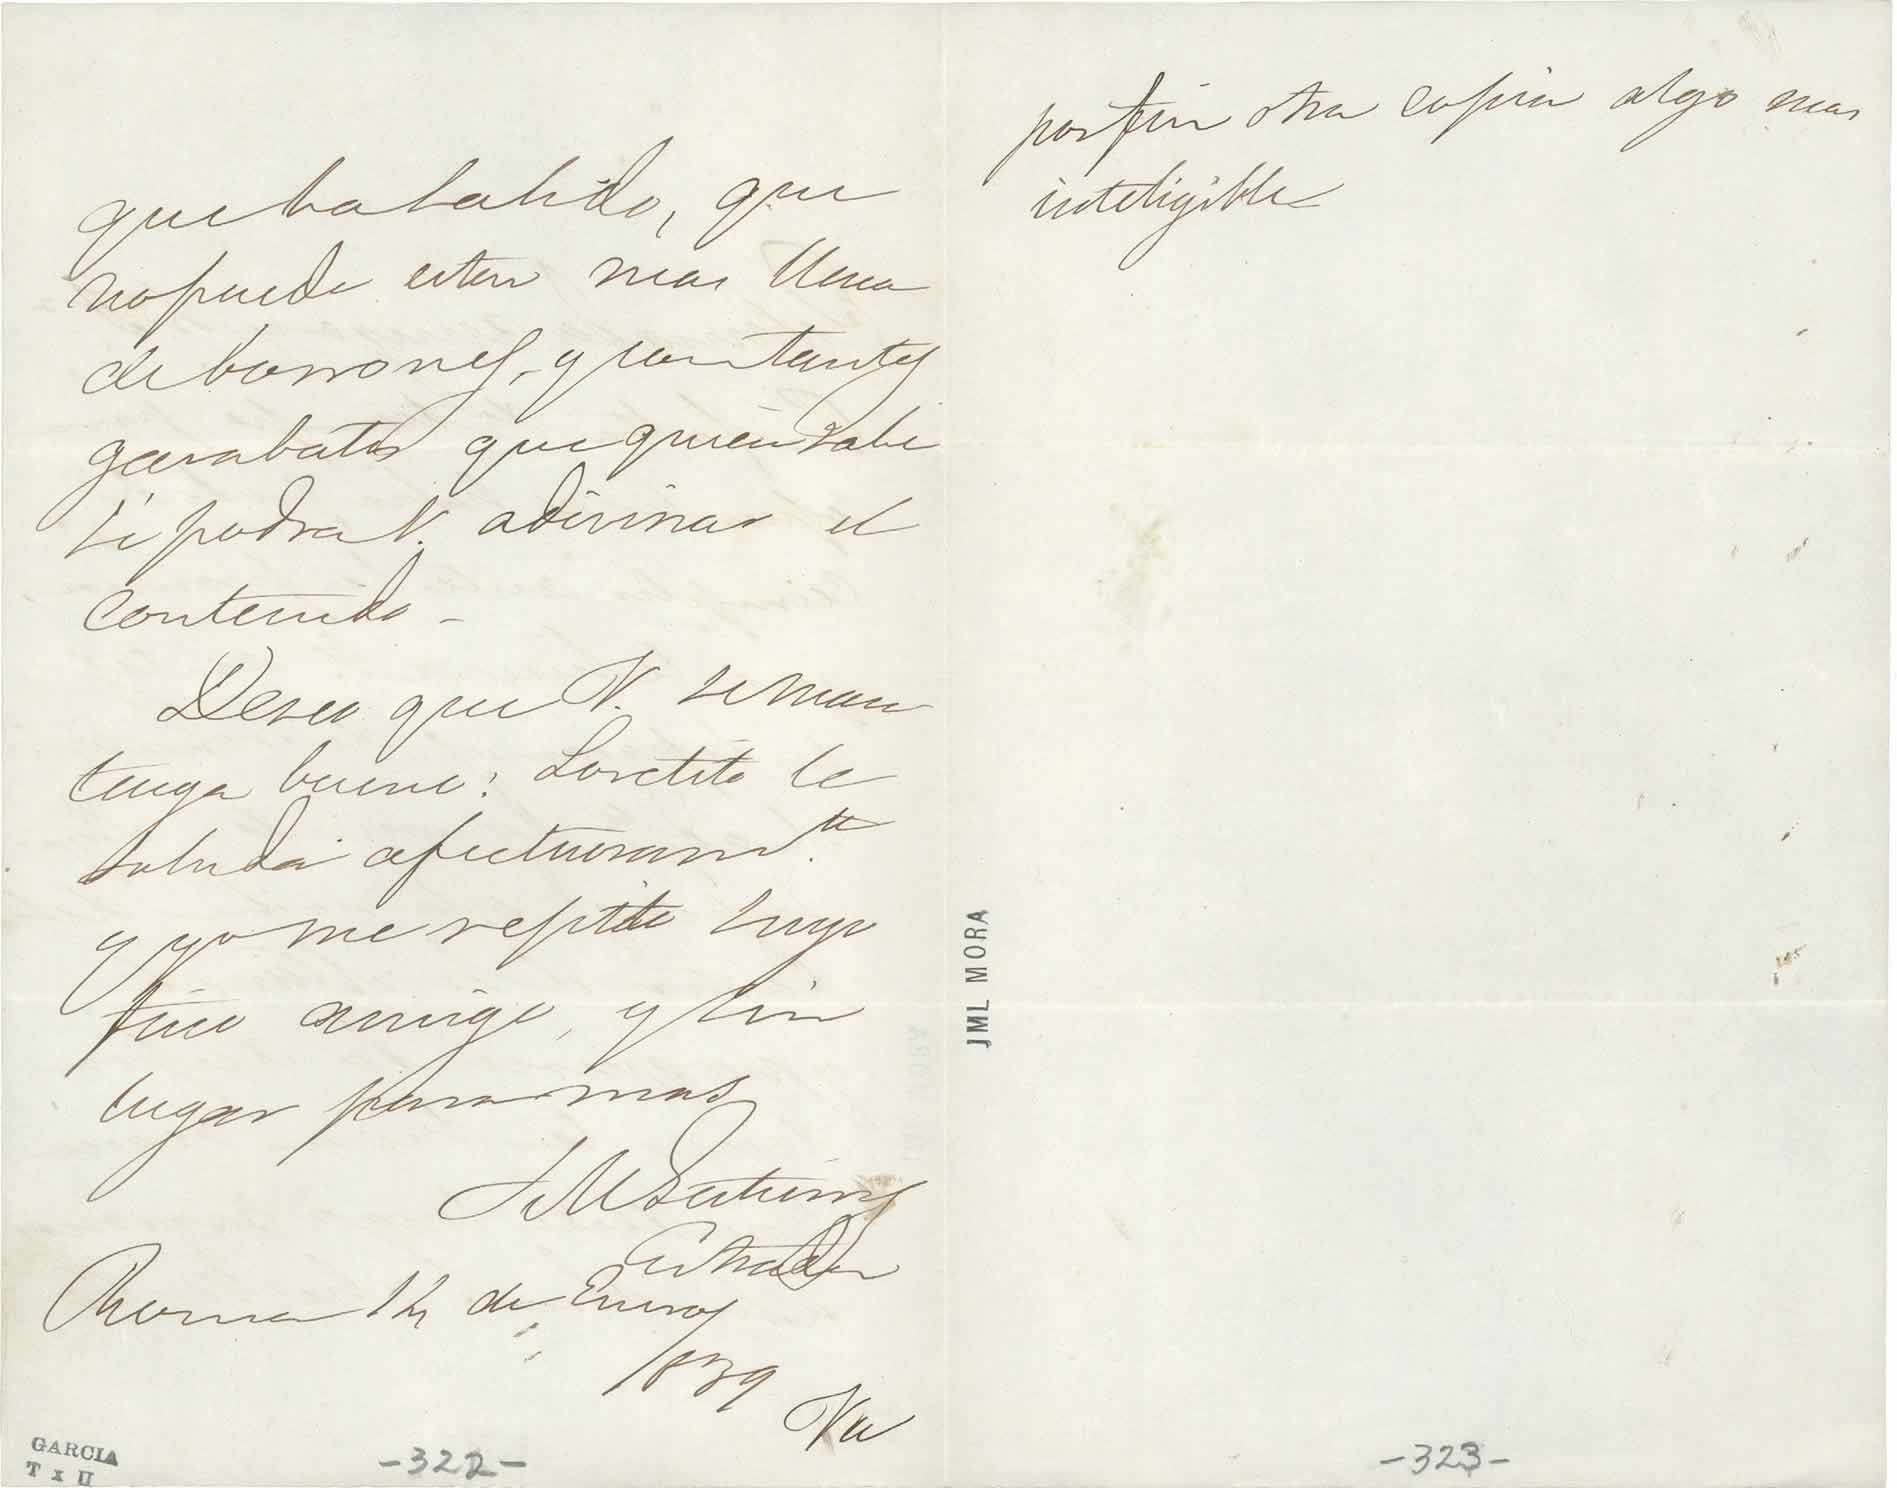 que ha salido, que
no puede estar mas llena
de borrones, y con tantos
garabatos que quien sabe
si podra V. adivinar el
contenido -
Deseo que V. se man
tenga bueno: Loretito le
saluda afectuosam.te
y yo me repito suyo
fino amigo, y sin
lugar para mas
J M Gutierrez
Estrada
Roma 12 de Enero
1839
Va
GARCIA
T x II
-322-
por fin otra copia algo mas
inteligible
JML MORA
-323-